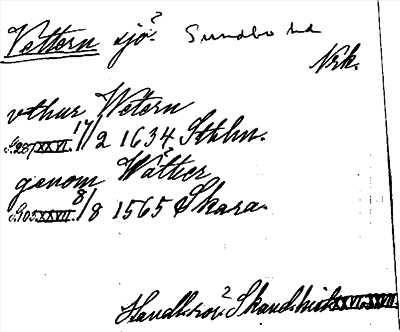 Vettern sjö? Sundbo hd
Nrk.
vthur Wetern
s. 287 XXVI. 17/2 1634 Sthlm.
genom Wätter
s. 105 XXVII. 8/8 1565 Skara.
Handl. rör? Skand. hist. XXVI. XXVII.